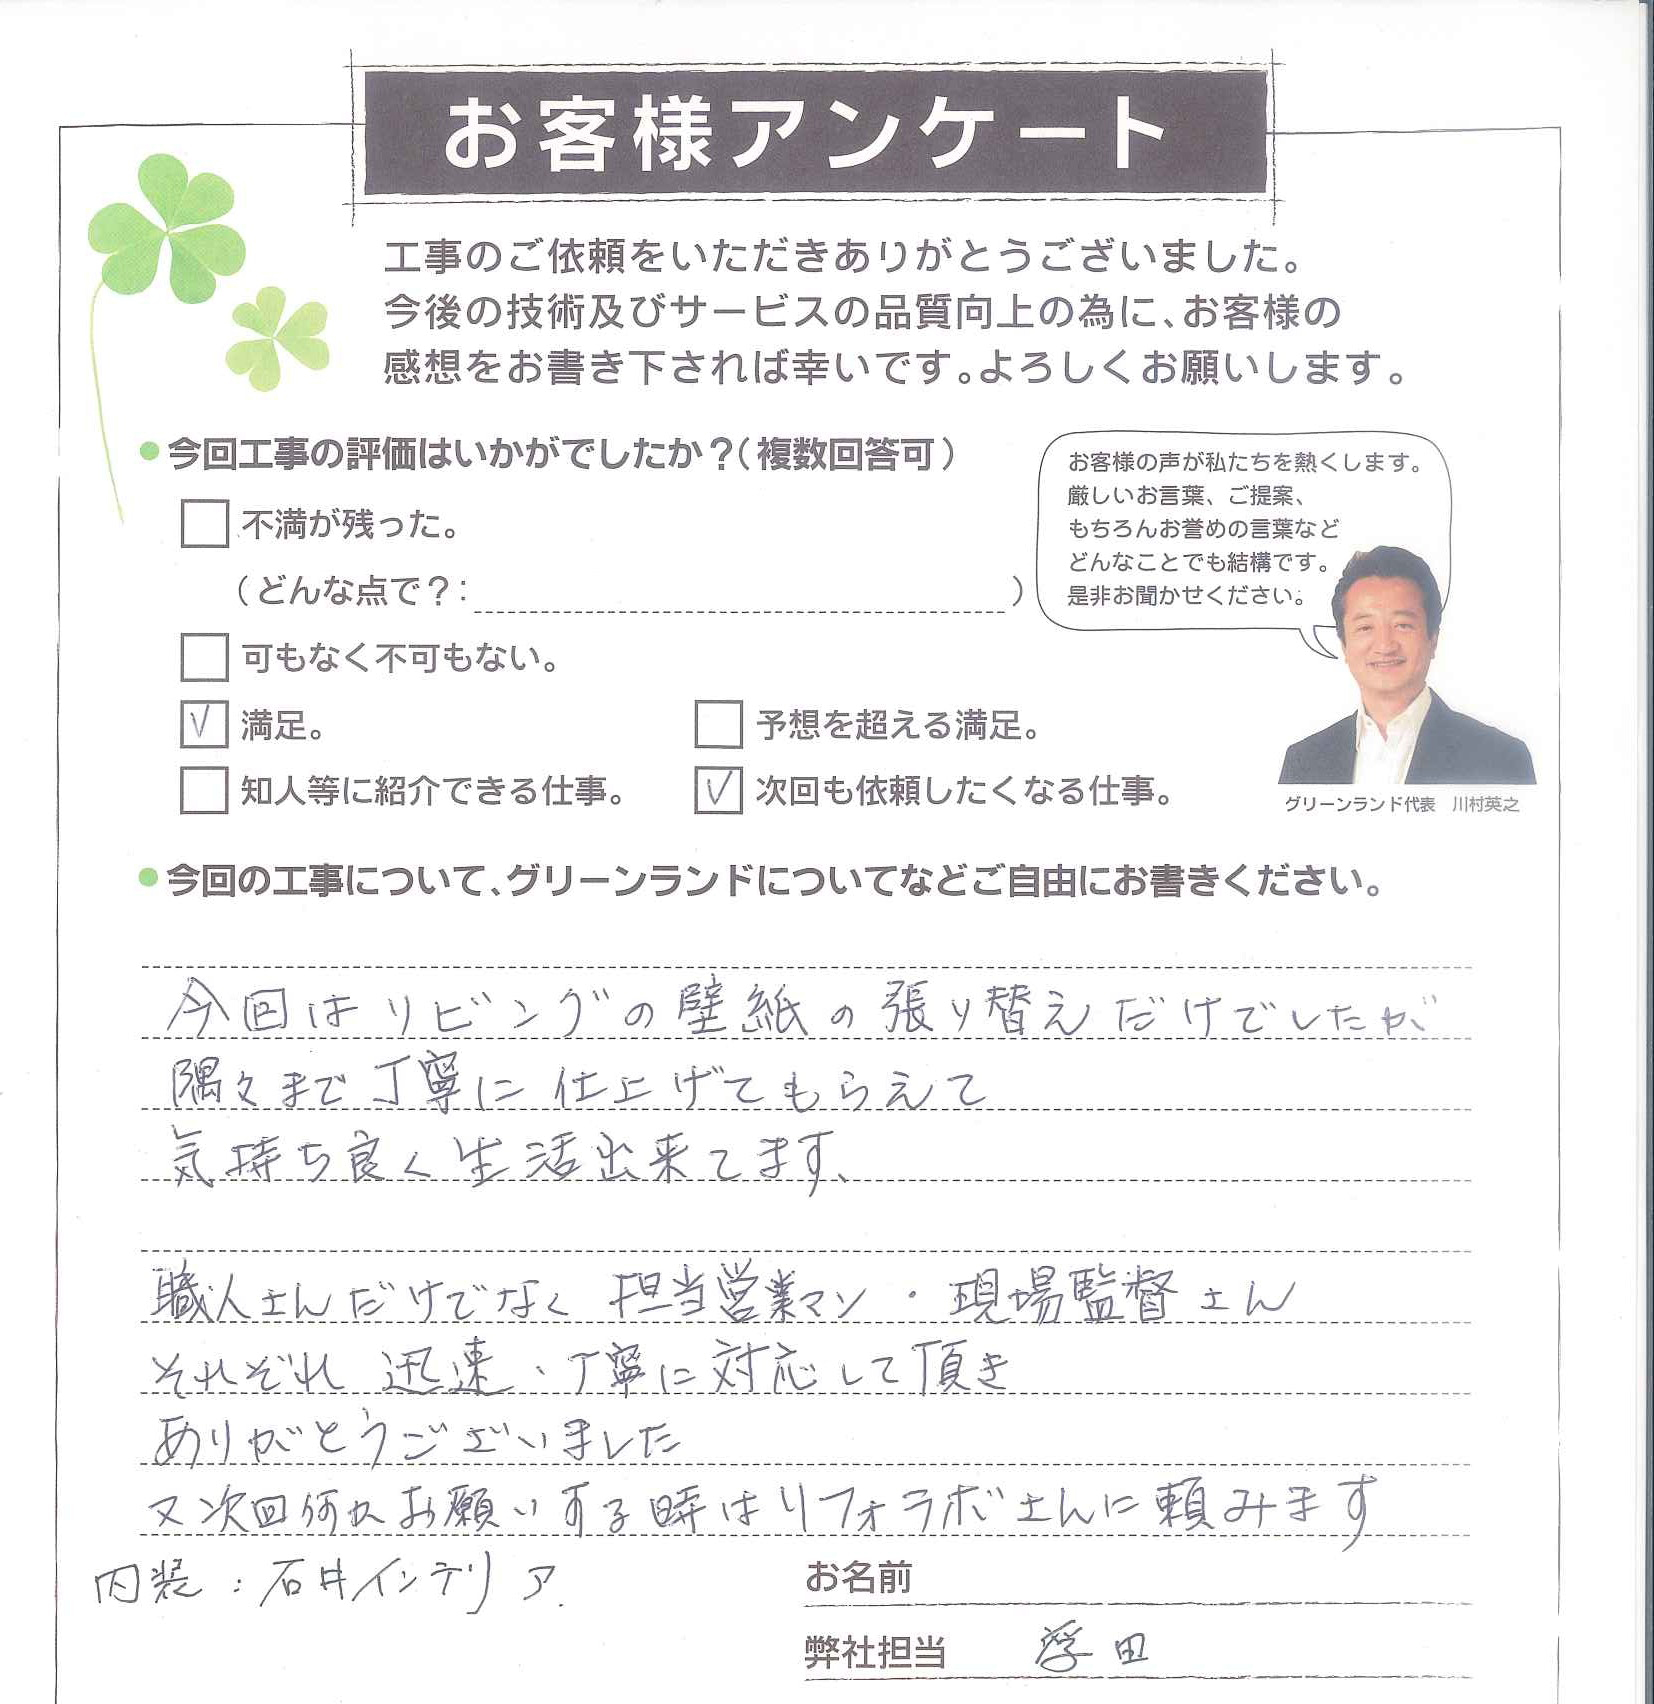 お客様アンケート
工事のご依頼をいただきありがとうございました。
今後の技術及びサービスの品質向上の為に、お客様の
感想をお書き下されば幸いです。よろしくお願いします。
今回工事の評価はいかがでしたか？（複数回答可）
不満が残った。
（どんな点で？：　）
可もなく不可もない。
満足。
予想を超える満足。
知人等に紹介できる仕事。
次回も依頼したくなる仕事。
お客様の声が私たちを熱くします。
厳しいお言葉、ご提案、
もちろんお誉めの言葉など
どんなことでも結構です。
是非お聞かせください。
グリーンランド代表　川村英之
今回の工事について、グリーンランドについてなどご自由にお書きください。
今回はリビングの壁紙の張り替えだけでしたが
隅々まで丁寧に仕上げてもらえて
気持ち良く生活出来てます、
職人さんだけでなく 担当営業マン・現場監督さん
それぞれ 迅速・丁寧に対応して頂き
ありがとうございました
又次回何かお願いする時はリフォラボさんに頼みます
内装：石井インテリア.
お名前
弊社担当　浮田